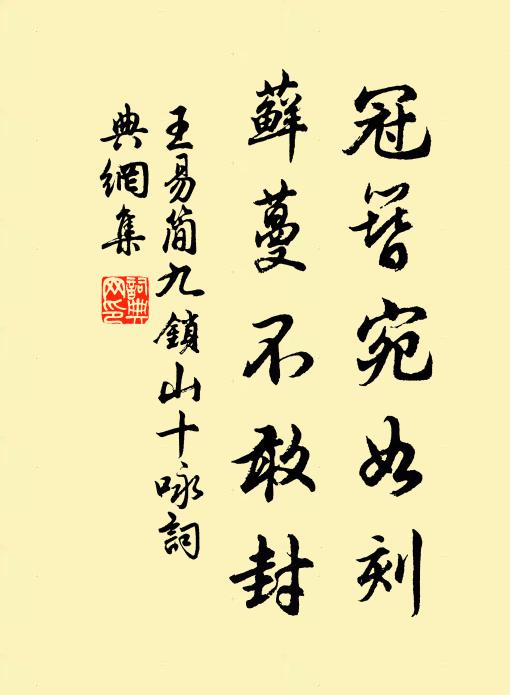 冠簪宛如刻
蘚蔓不敢封
王易简九鎖山十咏詞
典網集
詞典网印